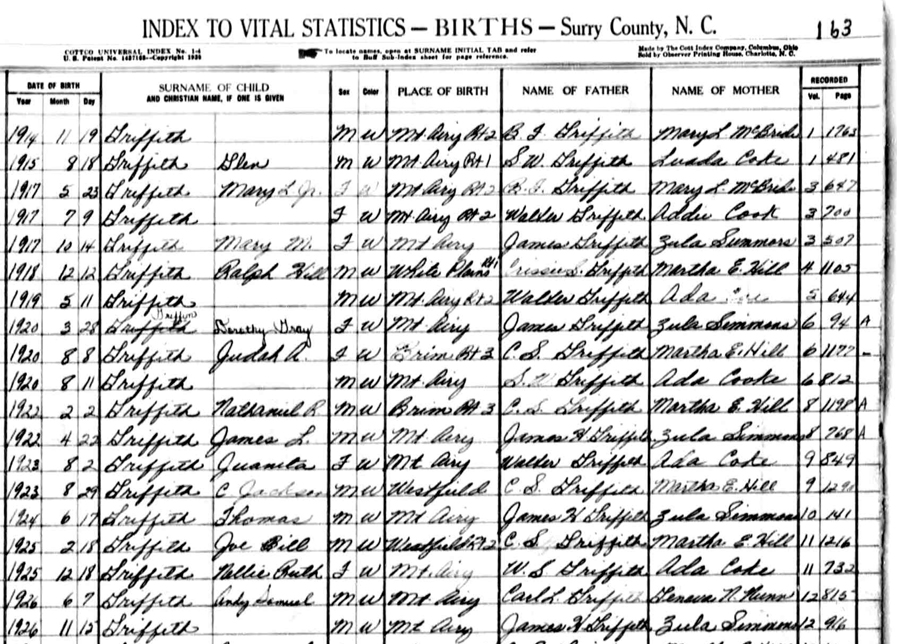 INDEX TO VITAL STATISTICS — BIRTHS — Surry County, N. C. 163
COTTCO UNIVERSAL INDEX No. 1-4
U. S. Patent No. 1457185—Copyright 1936
To locate names, open at SURNAME INITIAL TAB and refer
to Buff Sub-Index sheet for page reference.
Made by The Cott Index Company, Columbus, Ohio
Sold by Observer Printing House, Charlotte, N. C.
DATE OF BIRTH SURNAME OF CHILD AND CHRISTIAN NAME, IF ONE IS GIVEN Sex Color PLACE OF BIRTH NAME OF FATHER NAME OF MOTHER RECORDED
Year Month Day Vol. Page
1914 11 19 Griffith M W Mt Airy Rt 2 B. F. Griffith Mary L McBride 1 1763
1915 8 18 Griffith Glen M W Mt Airy Rt 1 S. W. Griffith Luada Coke 1 481
1917 5 23 Griffith Mary L Jr. F W Mt Airy Rt 2 Griffith Mary L McBride 3 647
1917 7 9 Griffith F W Mt Airy Rt 2 Walder Griffith Addie Cook 3 700
1917 10 14 Griffith Mary M. F W Mt Airy James Griffith Zula Summors 3 507
1918 12 12 Griffith Ralph Hill M W White Plains Rt 1 Griffith Martha E. Hill 4 1105
1919 5 11 Griffith M W Mt Airy Rt 2 Walder Griffith Ada 5 644
Griffin
1920 3 28 Griffith Dorothy Gray F W Mt Airy James Griffith Zula Simmons 6 94 A
1920 8 8 Griffith Judah A. F W Brim Rt 3 C. S. Griffith Martha E. Hill 6 1177 -
1920 8 11 Griffith M W Mt Airy S. W Griffith Ada Cooke 6 812
1922 2 2 Griffith Nathaniel R M W Brim Rt 3 C. S. Griffith Martha E. Hill 8 1198 A
1922 4 22 Griffith James L. M W Mt Airy James H Griffith Zula Simmons 8 768 A
1923 8 2 Griffith Juanita F W Mt Airy Walder Griffith Ada Coke 9 849
1923 8 29 Griffith C Jackson M W Westfield C S. Griffith Martha E. Hill 9
1924 6 17 Griffith Thomas M W Mt Airy James H Griffith Zula Simmons 10 141
1925 2 18 Griffith Joe Bill M W Westfield Rt 2 C. S. Griffith Martha E Hill 11 1216
1925 12 18 Griffith Nellie Ruth F W Mt. Airy W. S Griffith Ada Coke 11 732
1926 6 7 Griffith Andy Samuel M W Mt Airy Carl L. Griffith Geneva N. Nunn 12 815
1926 11 15 Griffith M W Mt Airy James H Griffith Zula Simmons 12 916